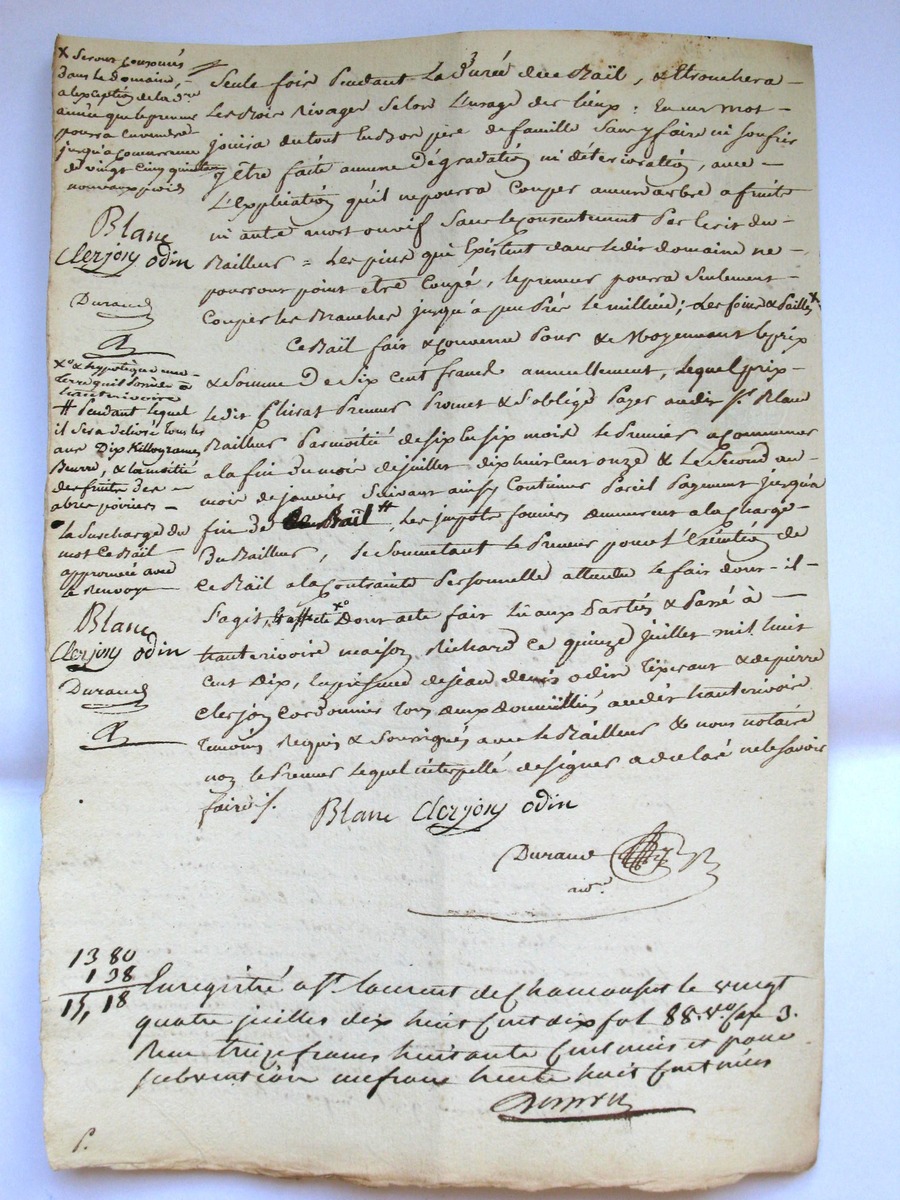 x Seront consumés
dans le domaine,
a l'exception de la d.re
année que le preneur
pourra en vendre
jusqu'a concurrance
de vingt cinq quintaux
nouveaux poids
Blanc
Clerjon odin
Durand
Seule fois Pendant La durée du Bail, & tronchera
Les Bois Rivages Selon L'usage des lieux : En un mot
jouira du tout en Bon père de famille Sans y faire ni soufrir
y être faite aucune Dégradation ni détérioration, avec
L'Explication qu'il ne pourra Couper aucun arbre a fruits
ni autre mort ou vif Sans le Consentement Par Ecrit du
Bailleur = Les pins qui Existent dans le dit domaine ne
pourront point etre Coupé, le preneur pourra Seulement
Couper les Branches jusqu'a peu Près le milieu; & Les foins & Pailles x
Ce Bail fait & convenu Pour & Moyennant le prix
& Somme De Six Cent francs annuellement, Lequel prix
le dit Preneur Promet & S'oblige Payer au dit S.r Blanc
Bailleur Par moitié de six en six mois Le Premier a Commencer
a la fin du mois de juillet dix huit cent onze & Le Second au
mois de janvier Suivant ainsy Continuer Pareil Payement jusqu'a
fin de Ce Bail #, Les impots fonciers demeurent a la Charge
Du Bailleur, Se Soumettant Le Preneur pour L'Exécution de
Ce Bail a la Contrainte Personnelle attendu le fait dont il
S'agit, & affecte x° Dont acte fait Lu aux Parties & Passé à
hauterivoire maison Richard Ce quinze juillet mil huit
Cent Dix, En présence de jean odin & de pierre
Clerjon Cordonnier Tous deux domiciliés au dit hauterivoire
Témoins Requis & Soussignés avec le Bailleur & nous notaire
non le Preneur Lequel interpellé de signer a déclaré ne le Savoir
faire ./.
x° & hypotèque une
Terre qu'il Possède à
hauterivoire
# Pendant lequel
il Sera delivré tous les
ans Dix Killogrames
Beurre, & la moitié
des fruits des
abres poiriers
La Surcharge du
mot Ce Bail
approuvée avec
Le Renvoy
Blanc
Clerjon odin
Durand
Blanc Clerjon odin
Durand
no.re
13 80
1 38
15, 18
Enregistré a S.t Laurent de Chamousset le vingt
quatre juillet dix huit Cent dix fol 88. v.o Case 3.
Reçu treize francs huitante Centimes et pour
subvention un franc trente huit Centimes